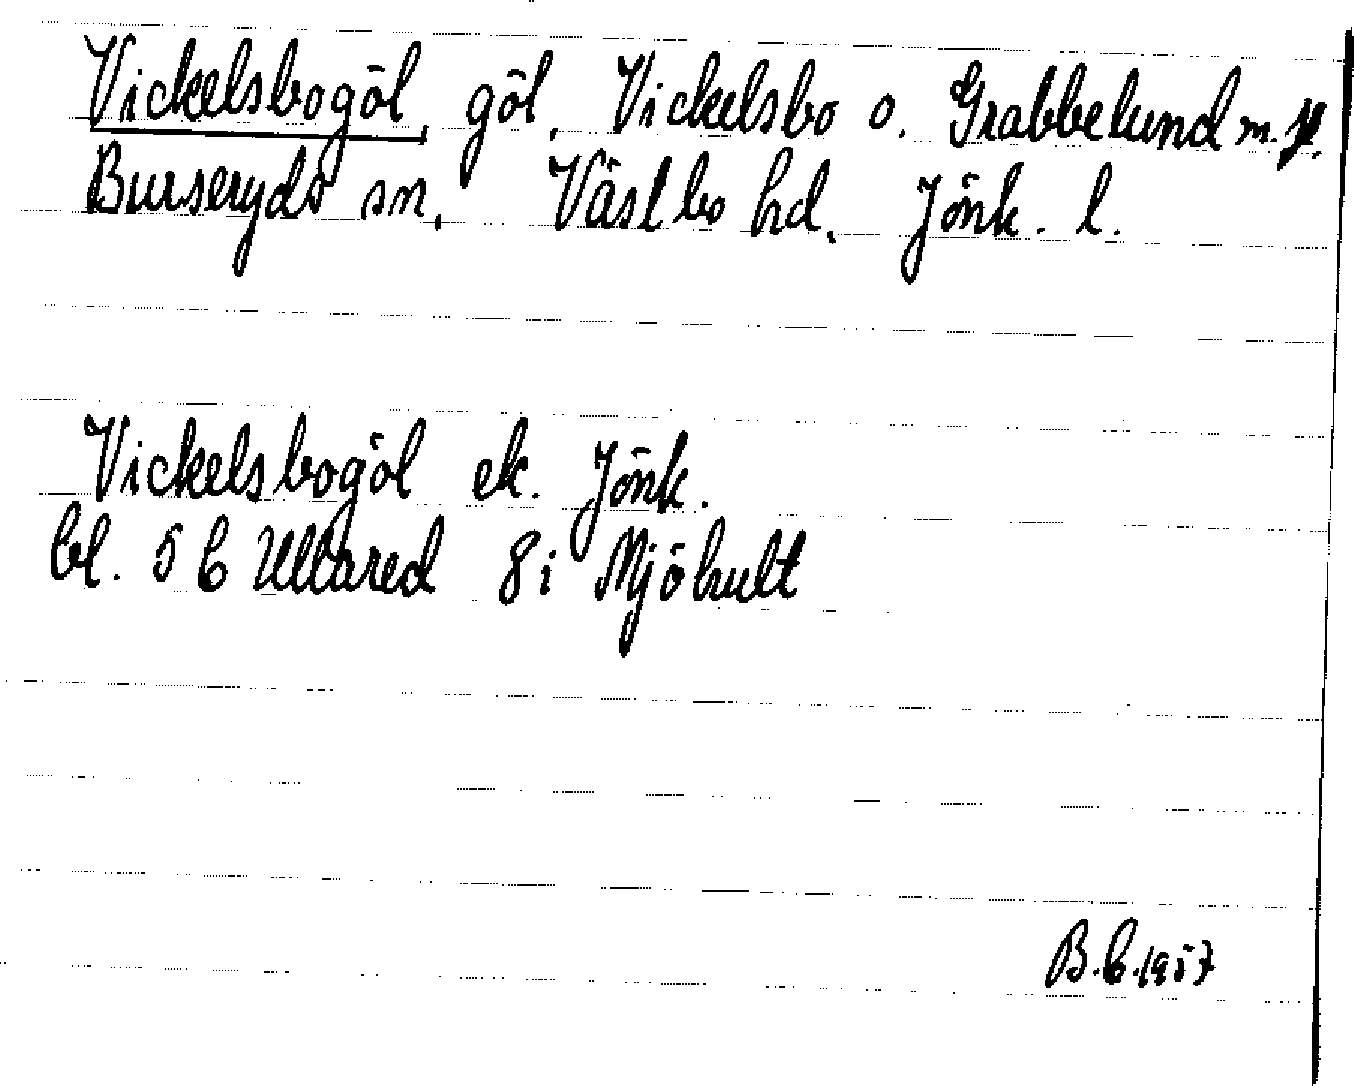 Vickelsbogöl, göl, Vickelsbo o. Grabbelund m. fl.
Burseryds sn. Västbo hd. Jönk. l.
Vickelsbogöl ek. Jönk.
bl. 5 C Ullared 8 i Mjöhult
B.C. 1957